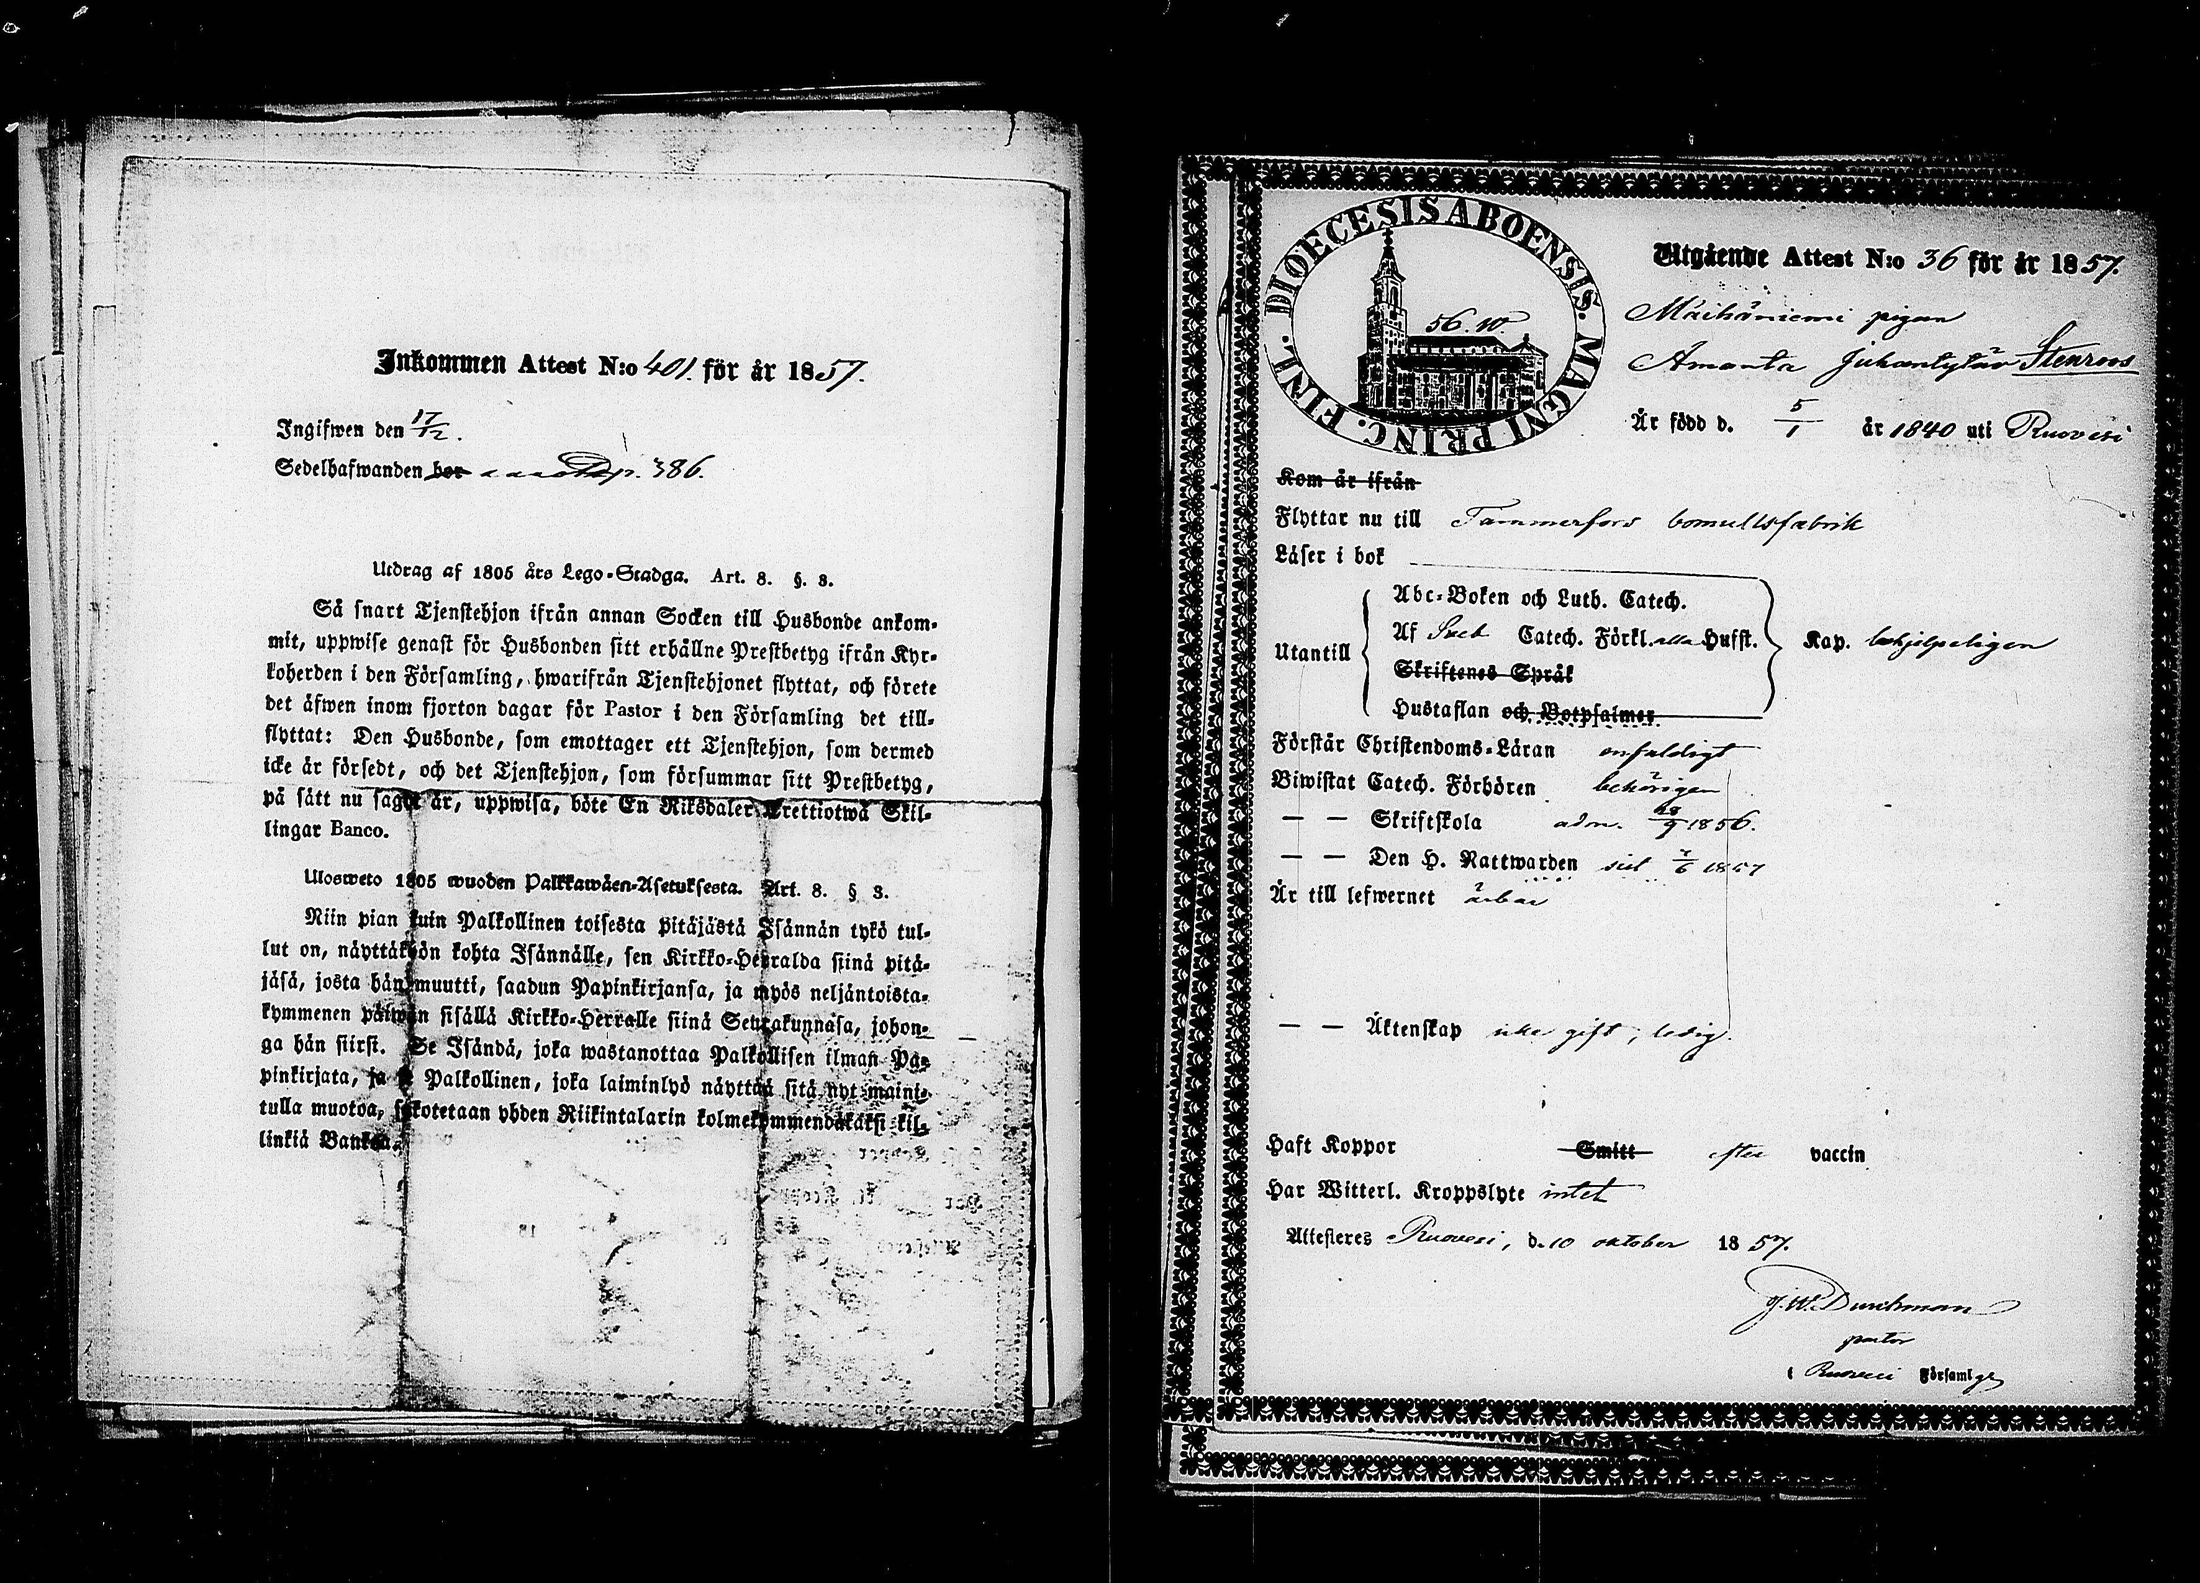 Inkommen Attest N:o 401. för år 1857.
Ingifwen den 17/12.
Sedelhafwanden bor p. 386.
Utdrag af 1805 års Lego-Stadga. Art. 8. §. 3.
Så snart Tjenstehjon ifrån annan Socken till Husbonde ankom-
mit, uppwise genast för Husbonden sitt erhållne Prestbetyg ifrån Kyr-
koherden i den Församling, hwarifrån Tjenstehjonet flyttat, och förete
det äfwen inom fjorton dagar för Pastor i den Församling det till-
flyttat: Den Husbonde, som emottager ett Tjenstehjon, som dermed
icke är försedt, och det Tjenstehjon, som försummar sitt Prestbetyg,
på sätt nu sagdt är, uppwisa, böte En Riksdaler Trettiotwå Skil-
lingar Banco.
Ulosweto 1805 wuoden Palkkawäen-Asetuksesta. Art. 8. § 3.
Niin pian kuin Palkollinen toisesta pitäjästä Isännän tykö tul-
lut on, näyttäköön kohta Isännälle, sen Kirkko-Herralda siinä pitä-
jäsä, josta hän muutti, saadun Papinkirjansa, ja myös neljäntoista-
kymmenen päiwän sisällä Kirkko-Herralle siinä Seurakunnasa, johon-
ga hän siirsi. Se Isändä, joka wastanottaa Palkollisen ilman Pa-
pinkirjata, ja se Palkollinen, joka laiminlyö näyttää sitä nyt maini-
tulla muotoa, sakotetaan yhden Riikintalarin kolmekymmendäkaksi kil-
linkiä Bankoa.
DIOECESIS ABOENSIS. MAGNI PRINC. FINL.
56. 10.
Utgående Attest N:o 36 för år 1857.
Maihäniemi pigan
Amanta Juhantytär Stenroos
Är född d. 5/1 år 1840 uti Ruovesi
Kom år ifrån
Flyttar nu till Tammerfors bomullsfabrik
Läser i bok
Utantill
Abc-Boken och Luth. Catech.
Af Sveb Catech. Förkl. alla Hufst.
Skriftenes Språk
Hustaflan och Botpsalmer
Kap. behjelpeligen
Förstår Christendoms-Läran enfaldigt
Biwistat Catech. Förhören behörigen
— — Skriftskola adm. 28/9 1856.
— — Den H. Nattwarden sist 7/6 1857
Är till lefwernet ärbar
— — Äktenskap icke gift, ledig.
Haft Koppor Smitt efter vaccin
Har Witterl. Kroppslyte intet
Attesteres Ruovesi, d. 10 oktober 1857.
J. W. Durchman
pastor
i Ruovesi Församlg